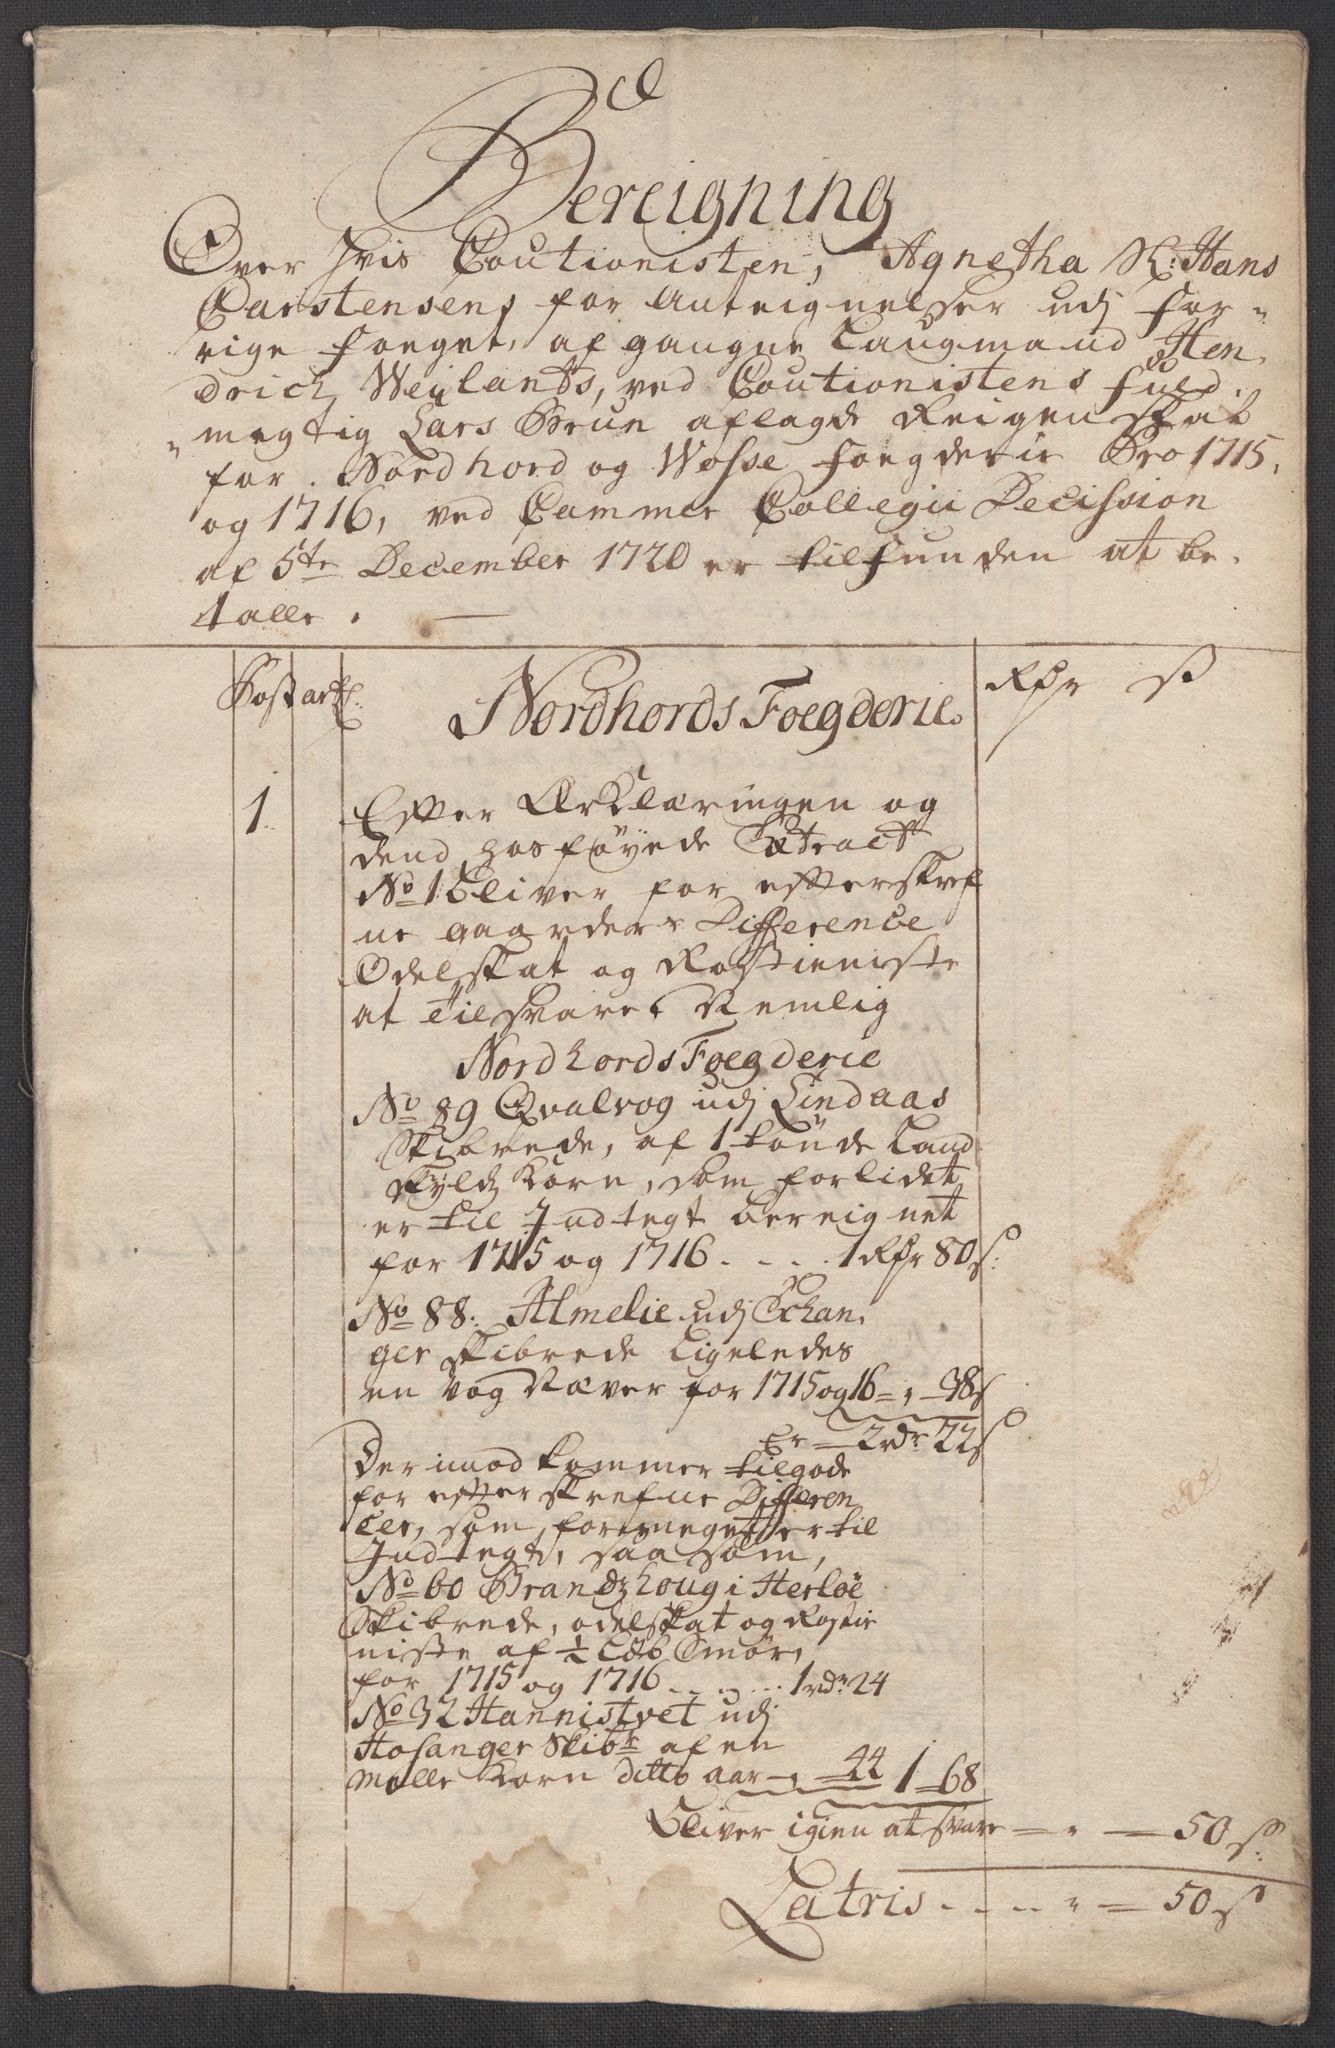 Bereigning
Over hvis Coutionisten, Agnetha Sl: Hans
Carstensens for Anteignelser udj for-
rige foeget, afgangne Laugmand Hen-
drich Weylants, ved Coutionistens fuld-
megtig Lars Brun aflagde Reigenskab
for Nordhord og Wosse foegderie Pro 1715,
og 1716, ved Cammer Collegii Decission
af 5te December 1720 er tilfunden at be-
talle.
Post art: Nordhords Foegderie. Rdr s
1. Efter Erklæringen og
dend hosføyede Extract
No 1 bliver for efterskref
ne gaarders Difference
Odelskat og Rostieniste
at tilsvare Nemlig
Nordhords Foegderie
No 89 Qvalvog udj Lindaas
Skibrede, af 1 tønde Land
skyld Korn, som forlidet
er til Indtegt bereignet
for 1715 og 1716 . . . . 1 Rdr 80 s:
No 88: Almelie udj Echan-
ger skibrede ligeledes
en vog Næver for 1715 og 16 = , — 38 s
Er — 2 rdr 22 s
Der imod kommer tilgode
for efterskrefne Differen
cer, som formeget er til
Indtegt, saa som,
No 60 Brandzhoug i Herløe
Skibrede, odelskat og Rostie
niste af ½ Løb Smør,
for 1715 og 1716 . . . . . 1 rdr 24
No 32 Hannistvet udj
Hosanger Skibr af en
Melle Korn ditto aar — , — 44 1 — 68
Bliver igien at svare — " — 50 s:
Latris . . . . " — 50 s